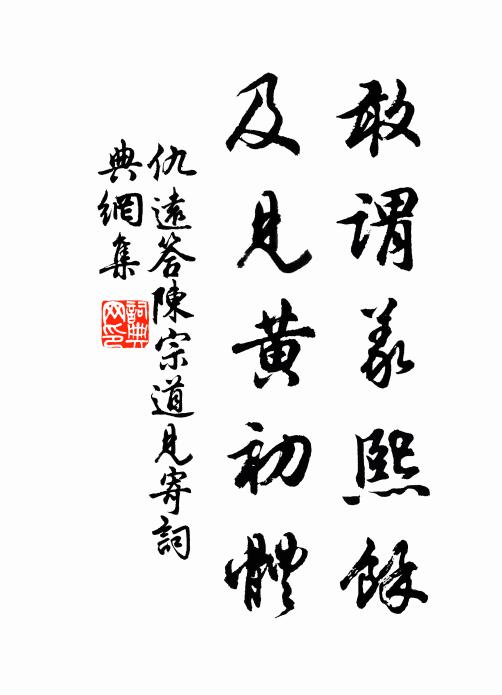 敢謂義熙餘
及見黃初體
仇遠答陳宗道見寄詞
典網集
詞典網印